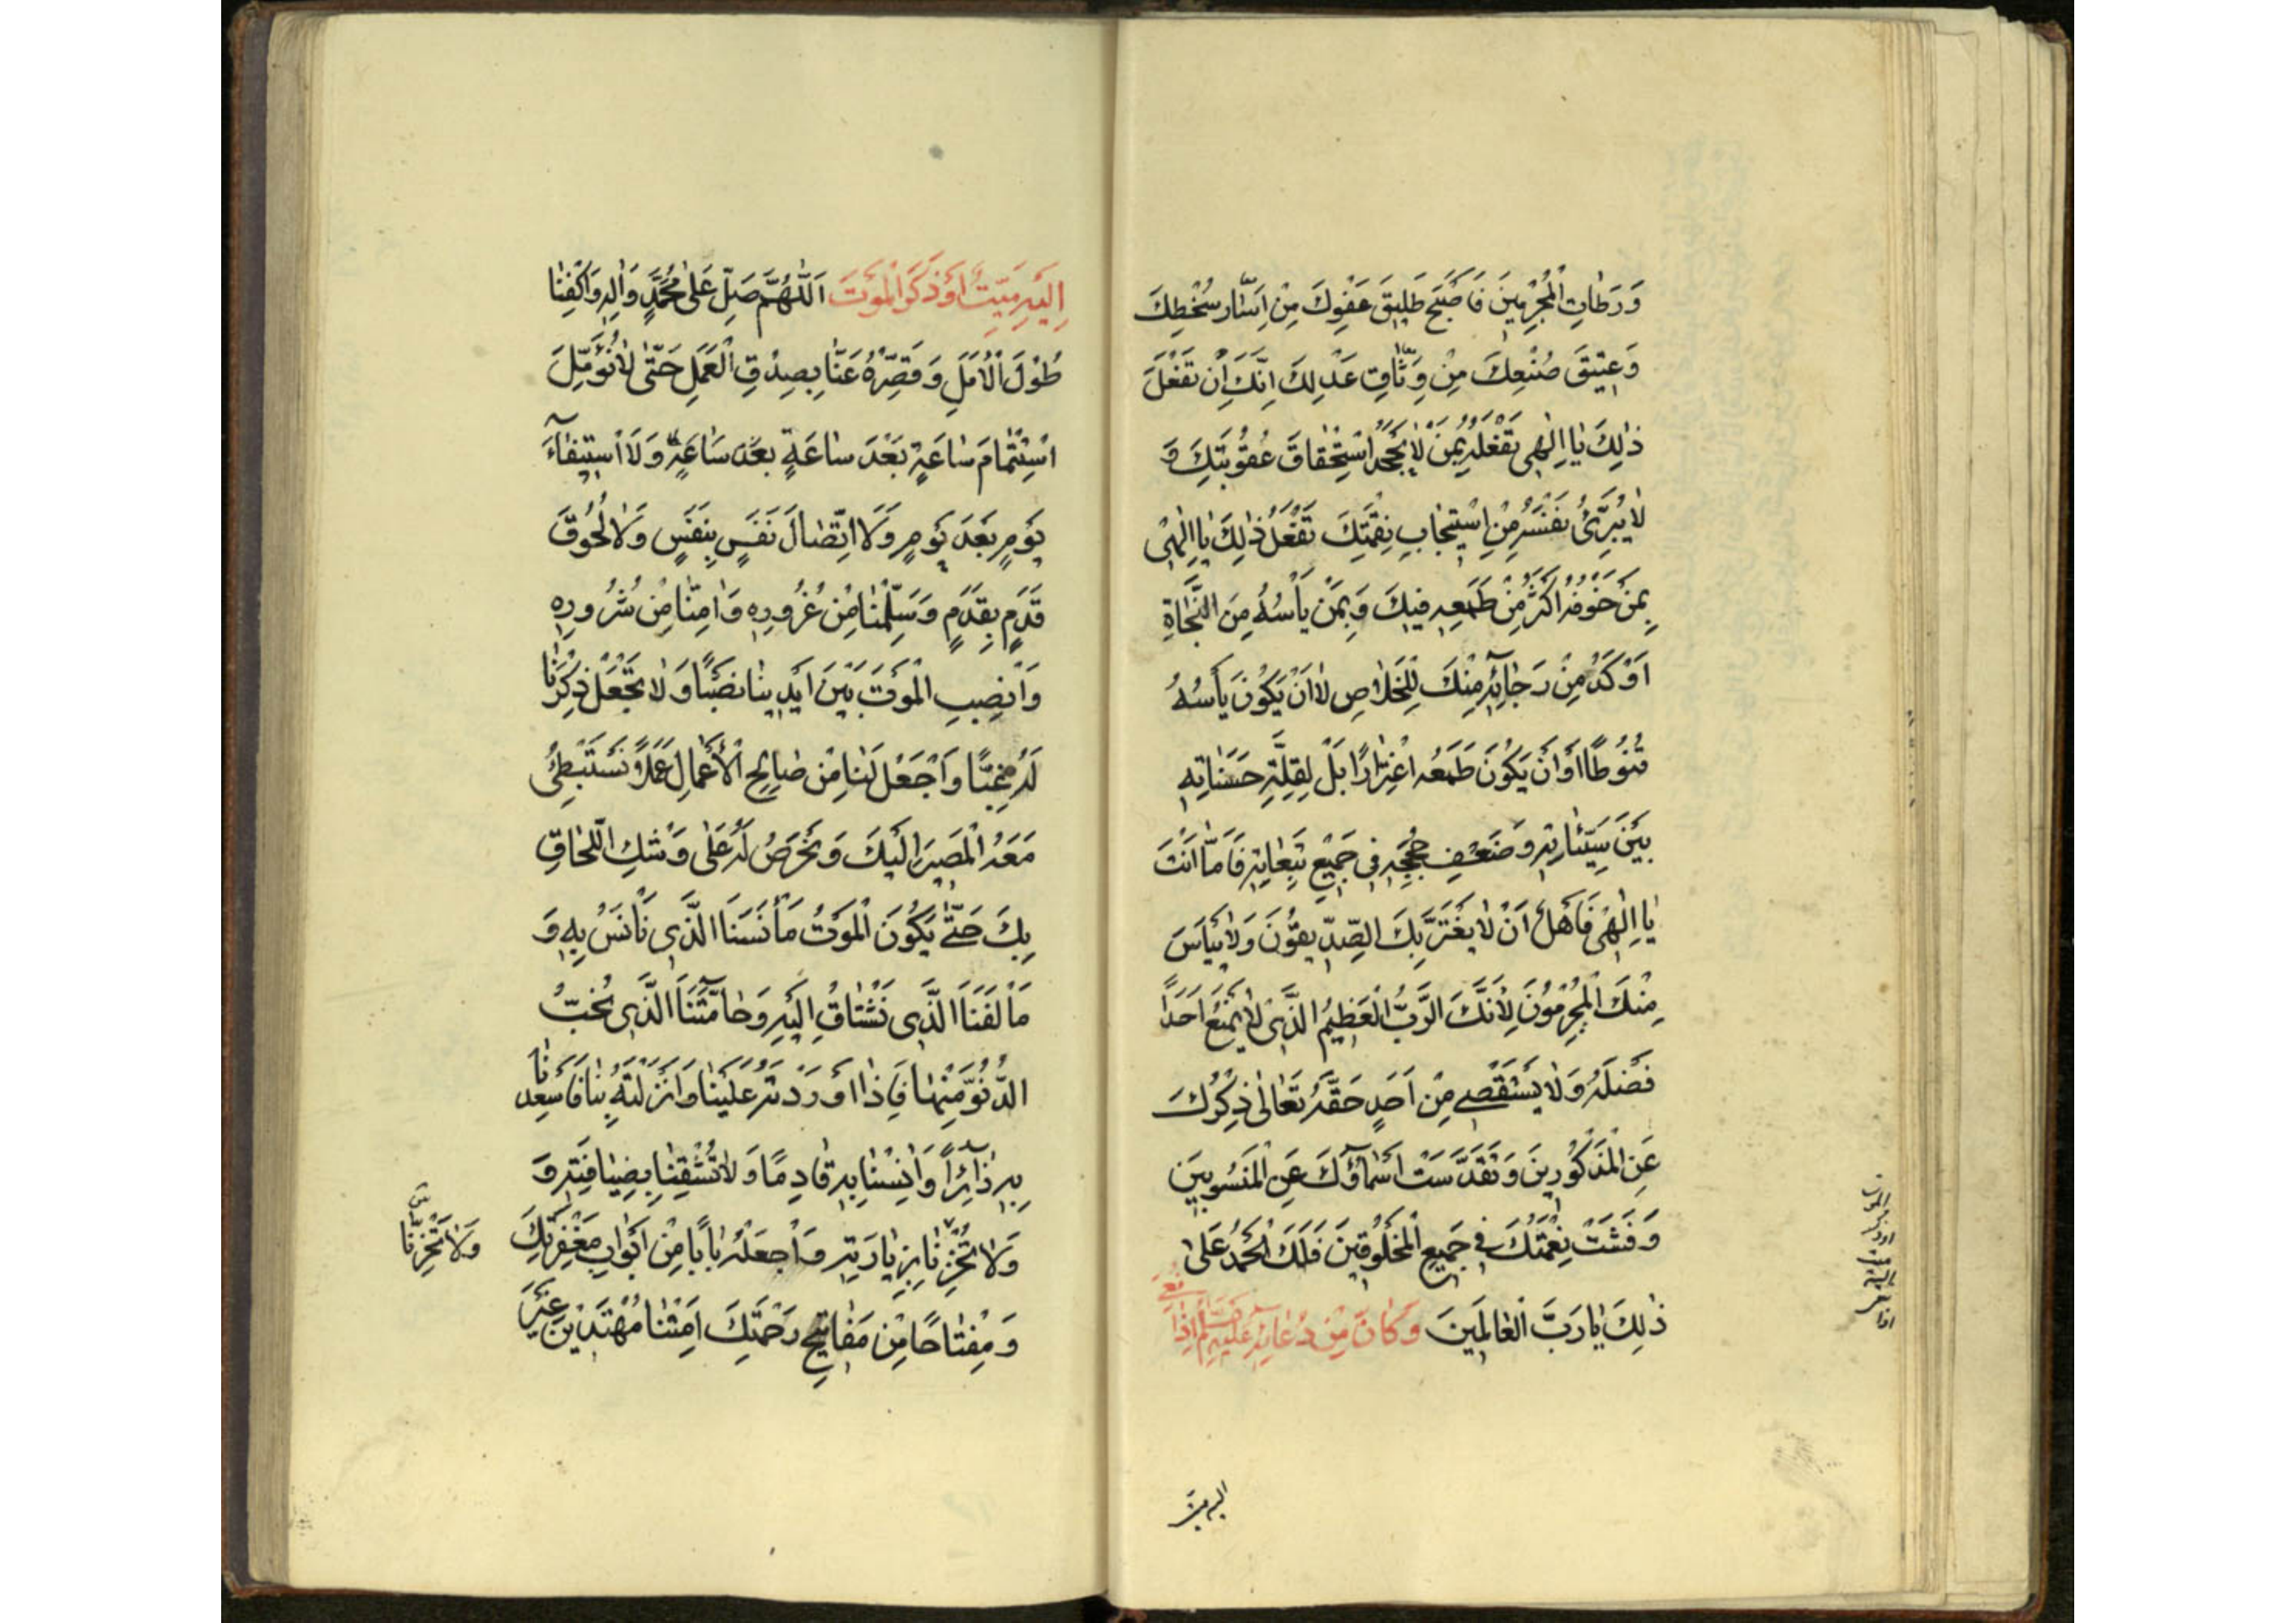 وَرَطَاتِ الْمُجْرِمِينَ فَأَصْبَحَ طَلِيقَ عَفْوِكَ مِنْ إِسَارِ سُخْطِكَ
وَعَتِيقَ صُنْعِكَ مِنْ وَثَاقِ عَدْلِكَ إِنَّكَ إِنْ تَفْعَلَ
ذٰلِكَ يَا إِلٰهِي تَفْعَلْهُ بِمَنْ لَا يَجْحَدُ اسْتِحْقَاقَ عُقُوبَتِكَ وَ
لَا يُبَرِّئُ نَفْسَهُ مِنِ اسْتِيجَابِ نِقْمَتِكَ تَفْعَلُ ذٰلِكَ يَا إِلٰهِي
بِمَنْ خَوْفُهُ أَكْثَرُ مِنْ طَمَعِهِ فِيكَ وَبِمَنْ يَأْسُهُ مِنَ النَّجَاةِ
أَوْكَدُ مِنْ رَجَائِهِ مِنْكَ لِلْخَلَاصِ لَا أَنْ يَكُونَ يَأْسُهُ
قُنُوطًا أَوْ أَنْ يَكُونَ طَمَعُهُ اغْتِرَارًا بَلْ لِقِلَّةِ حَسَنَاتِهِ
بَيْنَ سَيِّئَاتِهِ وَضَعْفِ حُجَجِهِ فِي جَمِيعِ تَبِعَاتِهِ فَأَمَّا أَنْتَ
يَا إِلٰهِي فَأَهْلٌ أَنْ لَا يَغْتَرَّ بِكَ الصِّدِّيقُونَ وَلَا يَيْأَسَ
مِنْكَ الْمُجْرِمُونَ لِأَنَّكَ الرَّبُّ الْعَظِيمُ الَّذِي لَا يَمْنَعُ أَحَدًا
فَضْلَهُ وَلَا يَسْتَقْصِي مِنْ أَحَدٍ حَقَّهُ تَعَالَى ذِكْرُكَ
عَنِ الْمَذْكُورِينَ وَتَقَدَّسَتْ أَسْمَاؤُكَ عَنِ الْمَنْسُوبِينَ
وَفَشَتْ نِعْمَتُكَ فِي جَمِيعِ الْمَخْلُوقِينَ فَلَكَ الْحَمْدُ عَلَى
ذٰلِكَ يَا رَبَّ الْعَالَمِينَ وَكَانَ مِنْ دُعَائِهِ عَلَيْهِ السَّلَمُ إِذَا نُعِيَ
اليه ميت
إِلَيْهِ مَيِّتٌ أَوْ ذَكَرَ الْمَوْتَ اَللّٰهُمَّ صَلِّ عَلَى مُحَمَّدٍ وَاٰلِهِ وَاكْفِنَا
طُولَ الْأَمَلِ وَقَصِّرْهُ عَنَّا بِصِدْقِ الْعَمَلِ حَتَّى لَا نُؤَمِّلَ
اسْتِتْمَامَ سَاعَةٍ بَعْدَ سَاعَةٍ بَعْدَ سَاعَةٍ وَلَا اسْتِيفَاءَ
يَوْمٍ بَعْدَ يَوْمٍ وَلَا اتِّصَالَ نَفَسٍ بِنَفَسٍ وَلَا لُحُوقَ
قَدَمٍ بِقَدَمٍ وَسَلِّمْنَا مِنْ غُرُورِهِ وَاٰمِنَّا مِنْ شُرُورِهِ
وَانْصِبِ الْمَوْتَ بَيْنَ أَيْدِينَا نَصْبًا وَلَا تَجْعَلْ ذِكْرَنَا
لَهُ غِبًّا وَاجْعَلْ لَنَا مِنْ صَالِحِ الْأَعْمَالِ عَمَلًا نَسْتَبْطِئُ
مَعَهُ الْمَصِيرَ إِلَيْكَ وَنَحْرَصُ لَهُ عَلَى وَشْكِ اللَّحَاقِ
بِكَ حَتَّى يَكُونَ الْمَوْتُ مَأْنَسَنَا الَّذِي نَأْنَسُ بِهِ وَ
مَأْلَفَنَا الَّذِي نَشْتَاقُ إِلَيْهِ وَحَامَّتَنَا الَّذِي نُحِبُّ
الدُّنُوَّ مِنْهَا فَإِذَا أَوْرَدْتَهُ عَلَيْنَا وَأَنْزَلْتَهُ بِنَا فَأَسْعِدْنَا
بِهِ زَائِرًا وَاٰنِسْنَا بِهِ قَادِمًا وَلَا تُشْقِنَا بِضِيَافَتِهِ وَ
وَلَا تُخْزِنَا بِزِيَارَتِهِ وَاجْعَلْهُ بَابًا مِنْ أَبْوَابِ مَغْفِرَتِكَ
وَمِفْتَاحًا مِنْ مَفَاتِيحِ رَحْمَتِكَ أَمِتْنَا مُهْتَدِينَ غَيْرَ
وَلَا تُخْزِنَا